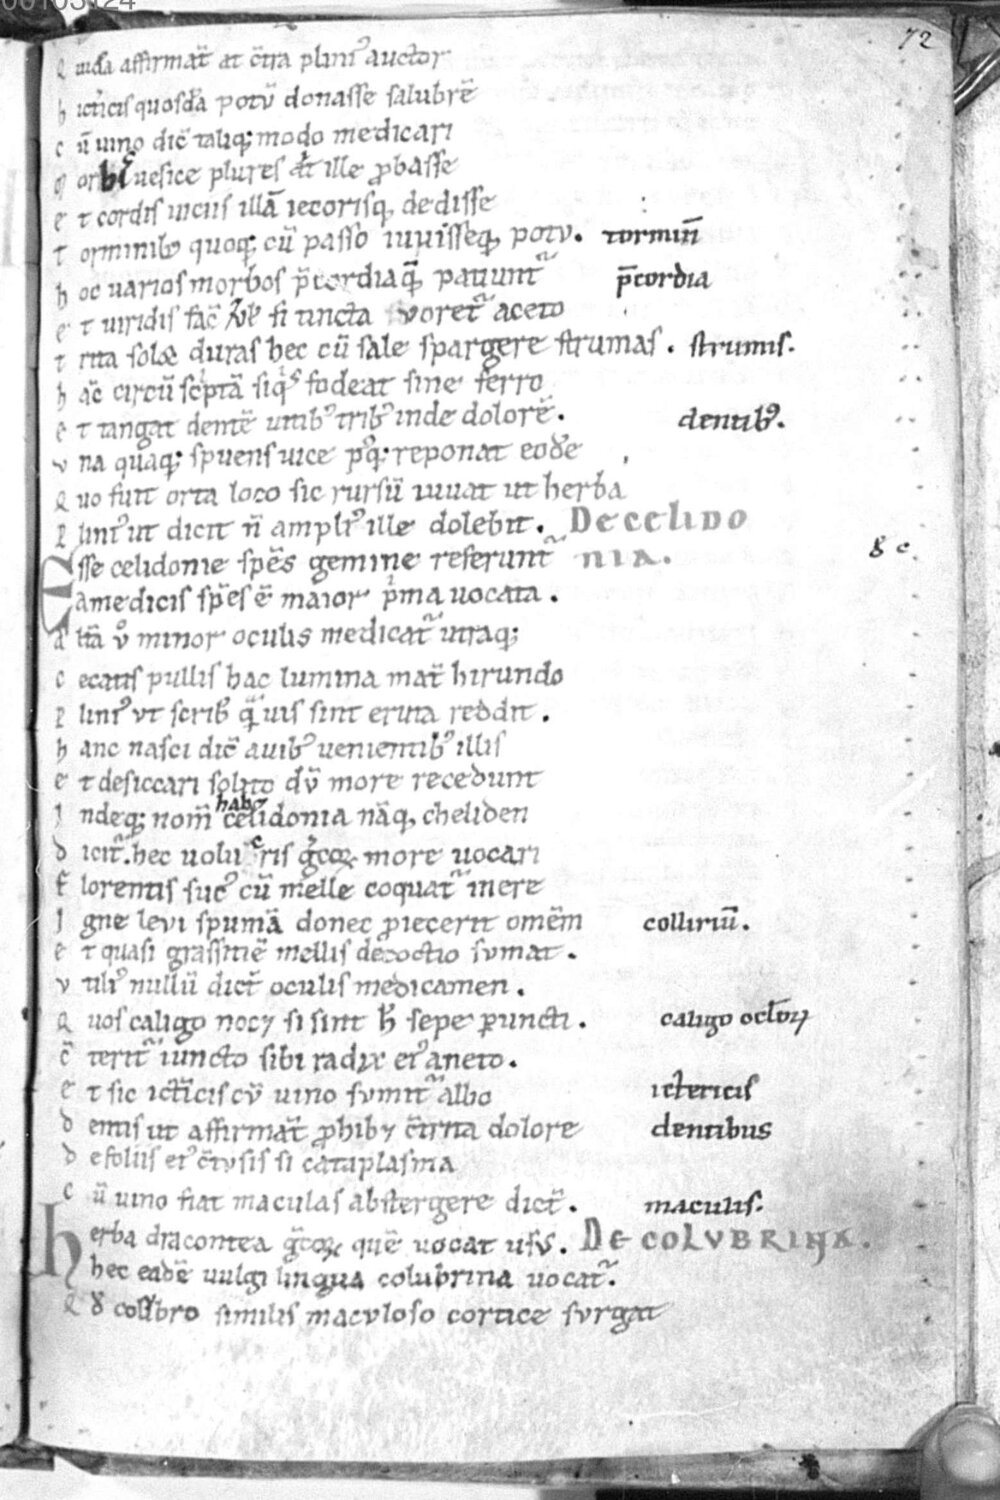 00103124
72
Q uida affirmat̄ at c̄tra plini᾽ auctor
h icticis quosdā potū donasse salubrē
c ū uino dic̄ taliq; modo medicari
m orbī uesice plures ill̄e p̄basse
e t cordis uiciis illā iecorisq, dedisse
t orminib; quoq; cū passo iuuisseq, potu. tormin̄
h oc uarios morbos p̄cordiaq̄ pauunt᷑ p̄cordia
e t uiridis fac̄ si uncta uoret᷑ aceto
t rita solæ duras hec cū sale spargere strumas. strumis.
h ac̄ circū sc̄ptā siq̄s fodeat sine ferro
e t tangat dentē utib᾽ trib᾽ inde dolorē. dentib᾽.
v na quaq; spuens uice p᾽q; reponat eodē
Q uo fuit orta loco sic rursū uiuat ut herba
P lini᾽ ut dicit n̄ ampli᾽ ille dolebit. De CELIDO
E sse celidonie sp̄es gemine referunt᷑ NIA.
a medicis sp̄es ē maior p̄ma uocata.
a lt̄a ů minor oculis medicat᷑ utraq;
c ecatis pullis hac lumina mat̄ hirundo
P lini᾽ ut scrib̄ q̄uis sint eruta reddit.
h anc nasci dic̄ auib᾽ uenientib᾽ illis
e t desiccari solito dū more recedunt
I ndeq; nom̄ habꝫ celidonia nāq, cheliden
d icit᷑ hec uolucris gͨcoꝝ more uocari
f lorentis suc᾽ cū melle coquat᷑ in ere
I gne levi spumā donec p̄iecerit omēm colliriū.
e t quasi grassitiē mellis decoctio sumat.
v tili᾽ nullū dict̄ oculis medicamen.
Q uos caligo nocꝫ si sint h̄ sepe p̄uncti. caligo oclōꝝ
c̄ terit᷑ iuncto sibi radix ei᾽ aneto.
e t sic ict̄icis cū uino sumit᷑ albo ictericis
d entis ut affirmat̄ p̄hibꝫ c̄trita dolore dentibus
d e foliis ei᾽ c̄tusis si cataplasma
c ū uino fiat maculas abstergere dict̄. maculis.
h erba dracontea gͨcoꝝ quē uocat usus. De COLVBRINA.
hec eadē uulgi lingua colubrina uocat᷑.
Q đ colubro similis maculoso cortice surgat